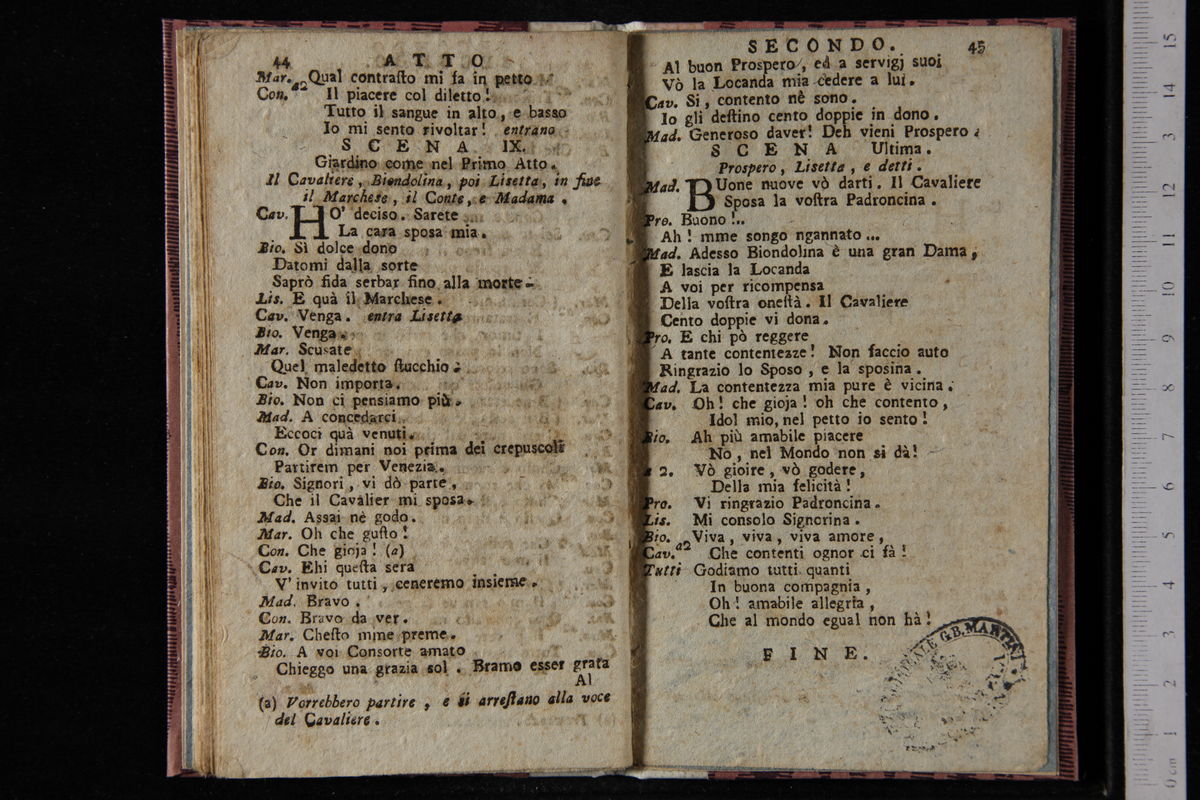 44 ATTO
Mar. a2 Qual contraſto mi fa in petto
Con. Il piacere col diletto!
Tutto il sangue in alto, e basso
Io mi sento rivoltar! entrano
SCENA IX.
Giardino come nel Primo Atto.
Il Cavaliere, Biondolina, poi Lisetta, in fine
il Marchese, il Conte, e Madama.
Cav. HO' deciso. Sarete
La cara sposa mia.
Bio. Sì dolce dono
Datomi dalla sorte
Saprò fida serbar fino alla morte.
Lis. E quà il Marchese.
Cav. Venga. entra Lisetta
Bio. Venga.
Mar. Scusate
Quel maledetto ſtucchio.
Cav. Non importa.
Bio. Non ci pensiamo più.
Mad. A concedarci
Eccoci quà venuti.
Con. Or dimani noi prima dei crepuscoli
Partirem per Venezia.
Bio. Signori, vi dò parte,
Che il Cavalier mi sposa.
Mad. Assai nè godo.
Mar. Oh che guſto!
Con. Che gioja! (a)
Cav. Ehi queſta sera
V'invito tutti, ceneremo insieme.
Mad. Bravo.
Con. Bravo da ver.
Mar. Cheſto mme preme.
Bio. A voi Consorte amato
Chieggo una grazia sol. Bramo esser grata
Al
(a) Vorrebbero partire, e si arreſtano alla voce
del Cavaliere.
SECONDO. 45
Al buon Prospero, ed a servigj suoi
Vò la Locanda mia cedere a lui.
Cav. Si, contento nè sono.
Io gli deſtino cento doppie in dono.
Mad. Generoso daver! Deh vieni Prospero.
SCENA Ultima.
Prospero, Lisetta, e detti.
Mad. BUone nuove vò darti. Il Cavaliere
Sposa la voſtra Padroncina.
Pro. Buono!..
Ah! mme songo ngannato...
Mad. Adesso Biondolina è una gran Dama,
E lascia la Locanda
A voi per ricompensa
Della voſtra oneſtà. Il Cavaliere
Cento doppie vi dona.
Pro. E chi pò reggere
A tante contentezze! Non faccio auto
Ringrazio lo Sposo, e la sposina.
Mad. La contentezza mia pure è vicina.
Cav. Oh! che gioja! oh che contento,
Idol mio, nel petto io sento!
Bio. Ah più amabile piacere
No, nel Mondo non si dà!
a 2. Vò gioire, vò godere,
Della mia felicità!
Pro. Vi ringrazio Padroncina.
Lis. Mi consolo Signorina.
Bio. a2 Viva, viva, viva amore,
Cav. Che contenti ognor ci fà!
Tutti Godiamo tutti quanti
In buona compagnia,
Oh! amabile allegria,
Che al mondo egual non hà!
FINE.
G.B. MARTINI
0 cm 1 2 3 4 5 6 7 8 9 10 11 12 13 14 15